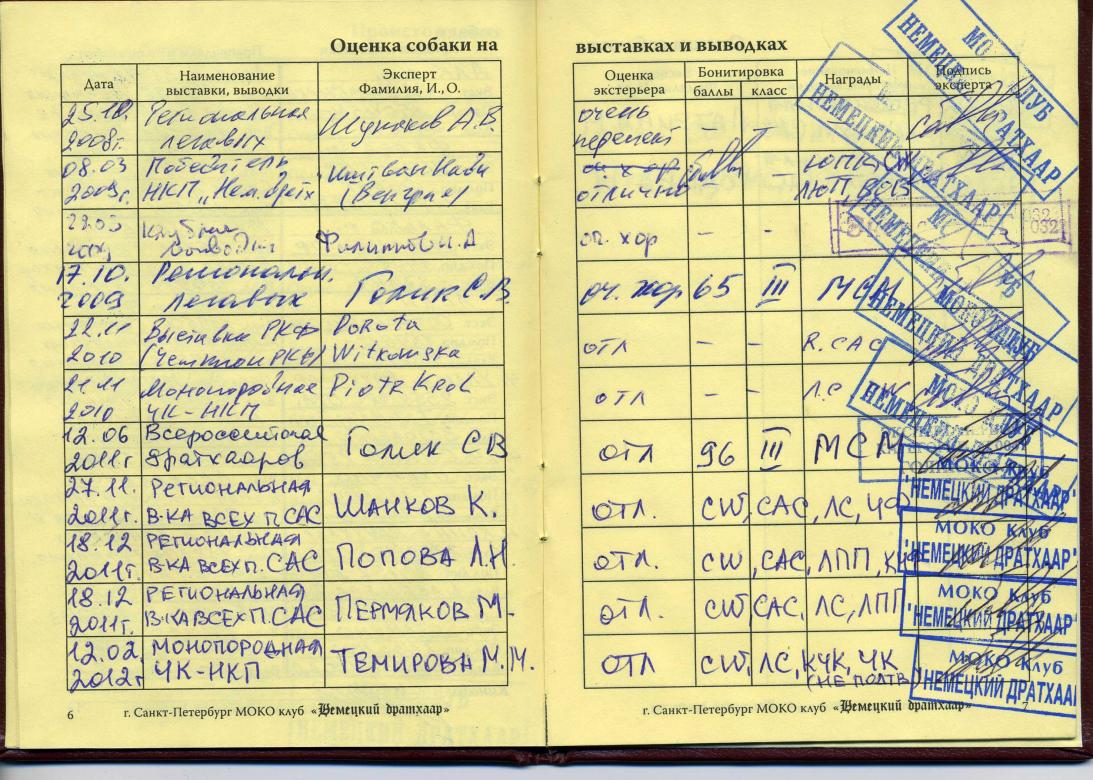 Оценка собаки на
Дата Наименование выставки, выводки Эксперт Фамилия, И., О.
25.10. 2008г. Региональная легавых А.В.
08.03 2009г. Победитель НКП „Нем. (Венгрия)
Клубная выводка Филиппов А
17.10. 2009 Регионалн. легавых Голик С.В.
22.11 2010 Выставка РКФ (Чемпион РКФ) Dorota Witkowska
21.11 2010 Монопородная ЧК-НКП Piotr Krol
12.06 2011г Всероссийская дратхааров Голик СВ
27.11. 2011г. РЕГИОНАЛЬНАЯ В-КА ВСЕХ П. САС ШАНКОВ К.
18.12 2011г. РЕГИОНАЛЬНАЯ В-КА ВСЕХ П. САС ПОПОВА Л.Н
18.12 2011г. РЕГИОНАЛЬНАЯ В-КА ВСЕХ П. САС ПЕРМЯКОВ М.
12.02. 2012г МОНОПОРОДНАЯ ЧК-НКП ТЕМИРОВА М.М.
6 г. Санкт-Петербург МОКО клуб «Немецкий дратхаар»
выставках и выводках
Оценка экстерьера Бонитировка баллы класс Награды Подпись эксперта
очень – –
о. хор отлично – ЮПК,
оч. хор – –
оч. хор 65 III МСМ
отл – – R.CAC
отл – –
отл 96 III МСМ
отл. CW, CAC, ЛС,
отл. CW, CAC, ЛПП,
отл. CW, CAC, ЛС, ЛПП
отл CW, ЛС, КЧК, ЧК
МОКО клуб
"НЕМЕЦКИЙ ДРАТХААР"
МОКО клуб
"НЕМЕЦКИЙ ДРАТХААР"
МОКО клуб
"НЕМЕЦКИЙ ДРАТХААР"
МОКО клуб
"НЕМЕЦКИЙ ДРАТХААР
г. Санкт-Петербург МОКО клуб «Немецкий дратхаар» 7